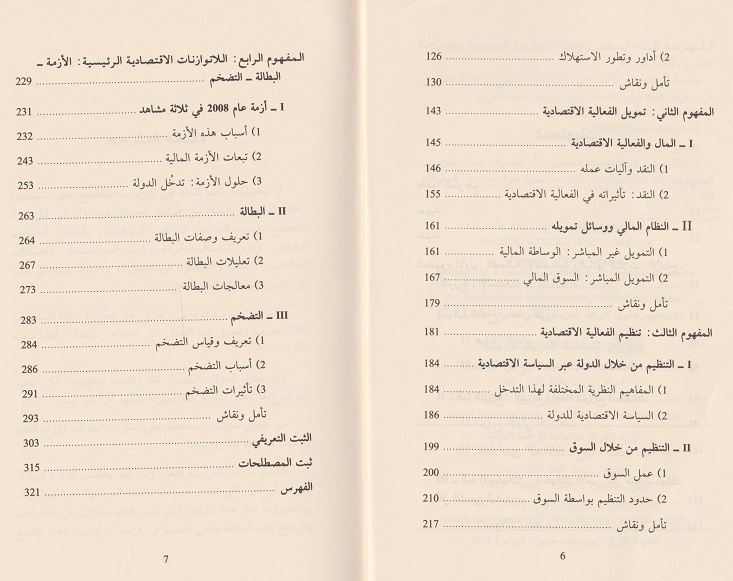 2) أداور وتطور الاستهلاك ........ 126
تأمل ونقاش ........ 130
المفهوم الثاني: تمويل الفعالية الاقتصادية ........ 143
I ـ المال والفعالية الاقتصادية ........ 145
1) النقد وآليات عمله ........ 146
2) النقد: تأثيراته في الفعالية الاقتصادية ........ 155
II ـ النظام المالي ووسائل تمويله ........ 161
1) التمويل غير المباشر: الوساطة المالية ........ 161
2) التمويل المباشر: السوق المالي ........ 167
تأمل ونقاش ........ 179
المفهوم الثالث: تنظيم الفعالية الاقتصادية ........ 181
I ـ التنظيم من خلال الدولة عبر السياسة الاقتصادية ........ 184
1) المفاهيم النظرية المختلفة لهذا التدخل ........ 184
2) السياسة الاقتصادية للدولة ........ 186
II ـ التنظيم من خلال السوق ........ 199
1) عمل السوق ........ 200
2) حدود التنظيم بواسطة السوق ........ 210
تأمل ونقاش ........ 217
6
المفهوم الرابع: اللاتوازنات الاقتصادية الرئيسية: الأزمة ـ
البطالة ـ التضخم ........ 229
I ـ أزمة عام 2008 في ثلاثة مشاهد ........ 231
1) أسباب هذه الأزمة ........ 232
2) تبعات الأزمة المالية ........ 243
3) حلول الأزمة: تدخُل الدولة ........ 253
II ـ البطالة ........ 263
1) تعريف وصفات البطالة ........ 264
2) تعليلات البطالة ........ 267
3) معالجات البطالة ........ 273
III ـ التضخم ........ 283
1) تعريف وقياس التضخم ........ 284
2) أسباب التضخم ........ 286
3) تأثيرات التضخم ........ 291
تأمل ونقاش ........ 293
الثبت التعريفي ........ 303
ثبت المصطلحات ........ 315
الفهرس ........ 321
7